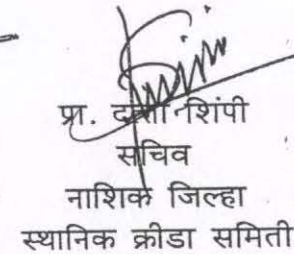 प्रा. दत्ता शिंपी
सचिव
नाशिक जिल्हा
स्थानिक क्रीडा समिती